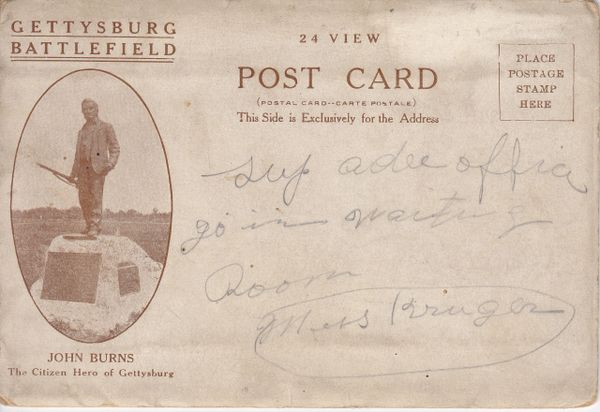 GETTYSBURG
BATTLEFIELD
24 VIEW
POST CARD
(POSTAL CARD--CARTE POSTALE)
This Side is Exclusively for the Address
PLACE
POSTAGE
STAMP
HERE
go in waiting
Room
Kruger
JOHN BURNS
The Citizen Hero of Gettysburg